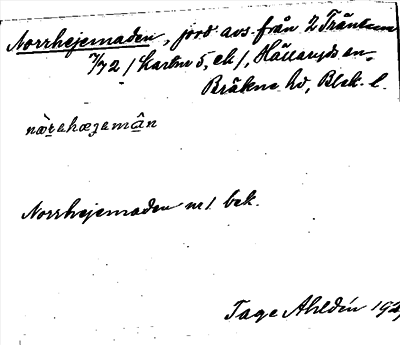 Norrhejemaden, jord avs. från 2 Tränhem
7/72 / Karbur 5, ek /, Hällaryds sn.
Bräkne hd, Blek. l.
nòrahæjamân
Norrhejemaden n / bek.
Tage Ahldén 192